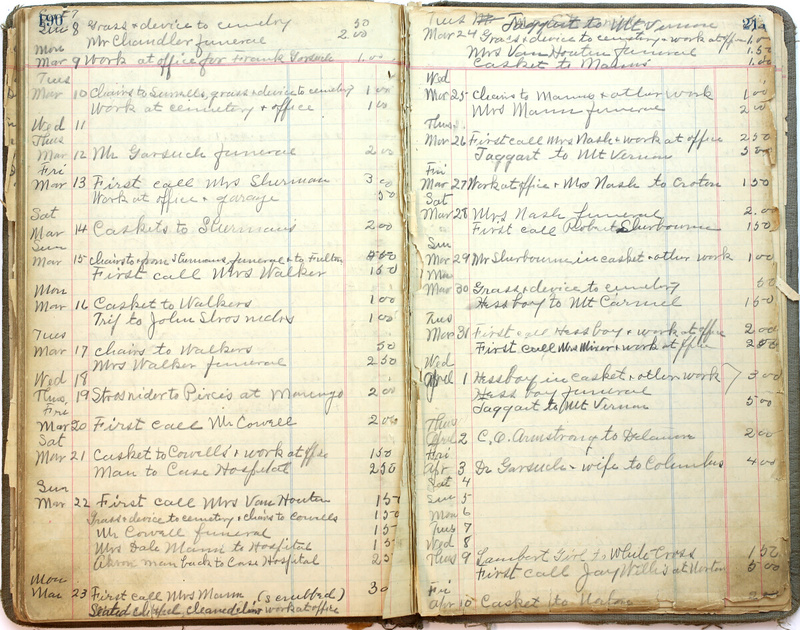 190
Sun 8 Grass + device to cemetry 50
Mr Chandler funeral 2 00
Mon
Mar 9 Work at office for Frank 1 00
Tues
Mar 10 Chairs to grass + device to cemetery 1 00
Work at cemetry + office 1 00
Wed 11
Thus
Mar 12 Mr Garsuch funeral 2 00
Fri
Mar 13 First call Mrs Sherman 3 00
Work at office + garage 50
Sat
Mar 14 Caskets to Shermans 2 00
Sun
Mar 15 Chairs from Shermans, funeral + to Fulton
First call Mrs Walker 1 50
Mon
Mar 16 Casket to Walkers 1 00
Trip to John Strosniders 1 00
Tues
Mar 17 chairs to Walkers 50
Mrs Walker funeral 2 50
Wed 18
Thus, 19 Strosnider to at Marengo 2 00
Fri
Mar 20 First call Mr Cowell 2 00
Sat
Mar 21 Casket to Cowells + work at office 1 50
Man to Case Hospital 2 50
Sun
Mar 22 First call Mrs Van Houten 15
Grass + device to cemetery + chairs to Cowells 15
Mr Cowell funeral 15
Mrs Dale Mann to Hospital 15
man back to Case Hospital 25
Mon
Mar 23 First call Mrs Mann (scrubbed) 3
work at office
Tues Taggart to Mt Vernon
Mar 24 Grass + device to cemetry + work at office
Mrs Van Houten funeral 1.50
Casket to Manns 1.00
Wed
Mar 25 Chairs to Manns + other work 1 00
Mrs Mann funeral 2 00
Thus.
Mar 26 First call Mrs Nash + work at office 2 50
Taggart to Mt Vernon 5 00
Fri
Mar 27 Work at office + Mrs Nash to Croton 1 50
Sat
Mar 28 Mrs Nash funeral 2.00
First call Robert Sherbourne 1 50
Sun
Mar 29 Mr Sherbourne in casket + other work 1 00
Mon
Mar 30 Grass + device to cemetry 50
Hess boy to Mt Carmel 1 50
Tues
Mar 31 First call Hess boy + work at office 2 00
First call Mrs + work at office 2 50
Wed
April 1 Hess boy in casket + other work 3 00
Hess boy funeral
Taggart to Mt Vernon 5 00
Thus
2 C. O. Armstrong to 2 00
Fri
Apr 3 Dr Garsuch + wife to Columbus 4 00
Sat 4
Sun 5
Mon 6
Tues 7
Wed 8
Thus 9 Lambert Girl to White Cross 1 50
First call Jay at Norton 5 00
Fri
Apr 10 Casket to Norton